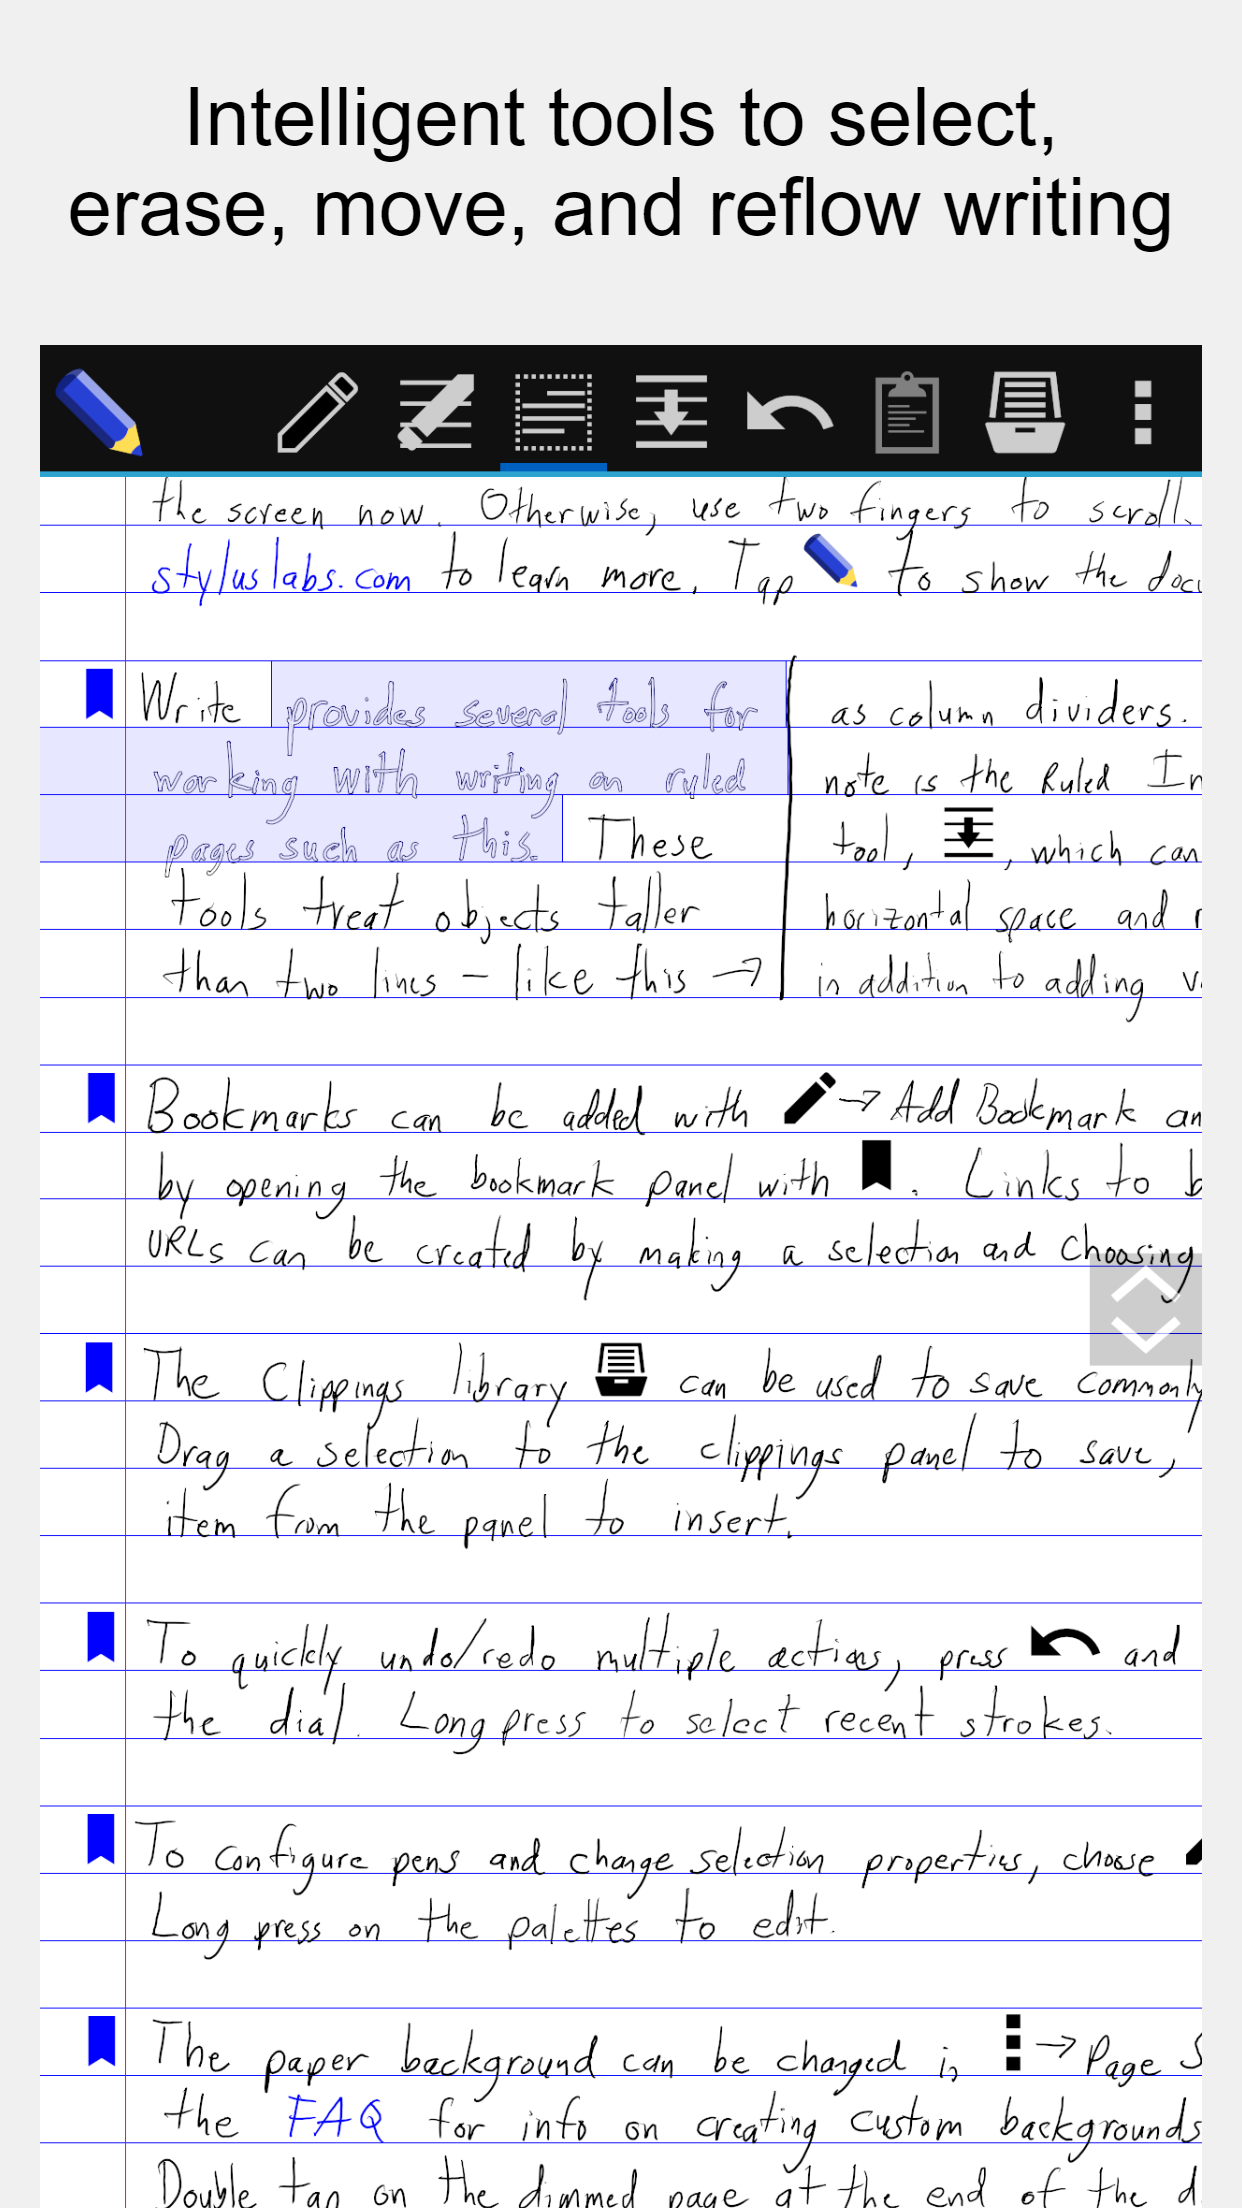 Intelligent tools to select,
erase, move, and reflow writing
the screen now. Otherwise, use two fingers to scroll.
styluslabs.com to learn more. Tap to show the docu
Write provides several tools for
working with writing on ruled
pages such as this. These
tools treat objects taller
than two lines – like this →
as column dividers.
note is the Ruled In
tool, , which can
horizontal space and r
in addition to adding v
Bookmarks can be added with → Add Bookmark an
by opening the bookmark panel with . Links to b
URLs can be created by making a selection and choosing
The Clippings library can be used to save commonly
Drag a selection to the clippings panel to save,
item from the panel to insert.
To quickly undo/redo multiple actions, press and
the dial. Long press to select recent strokes.
To configure pens and change selection properties, choose
Long press on the palettes to edit.
The paper background can be changed in → Page S
the FAQ for info on creating custom backgrounds
Double tap on the dimmed page at the end of the d